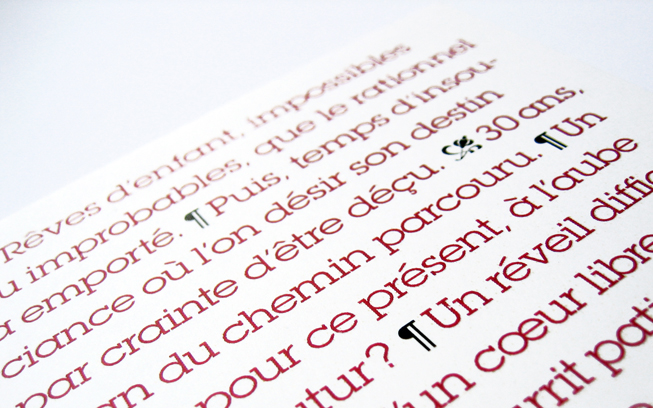 Rêves d'enfant, impossibles
u improbables, que le rationnel
a emporté. ¶ Puis, temps d'insou-
ciance où l'on désir son destin
par crainte d'être déçu. ❧ 30 ans,
an du chemin parcouru. ¶ Un
pour ce présent, à l'aube
utur? ¶ Un réveil diffic
d'un cœur libre
urrit pati